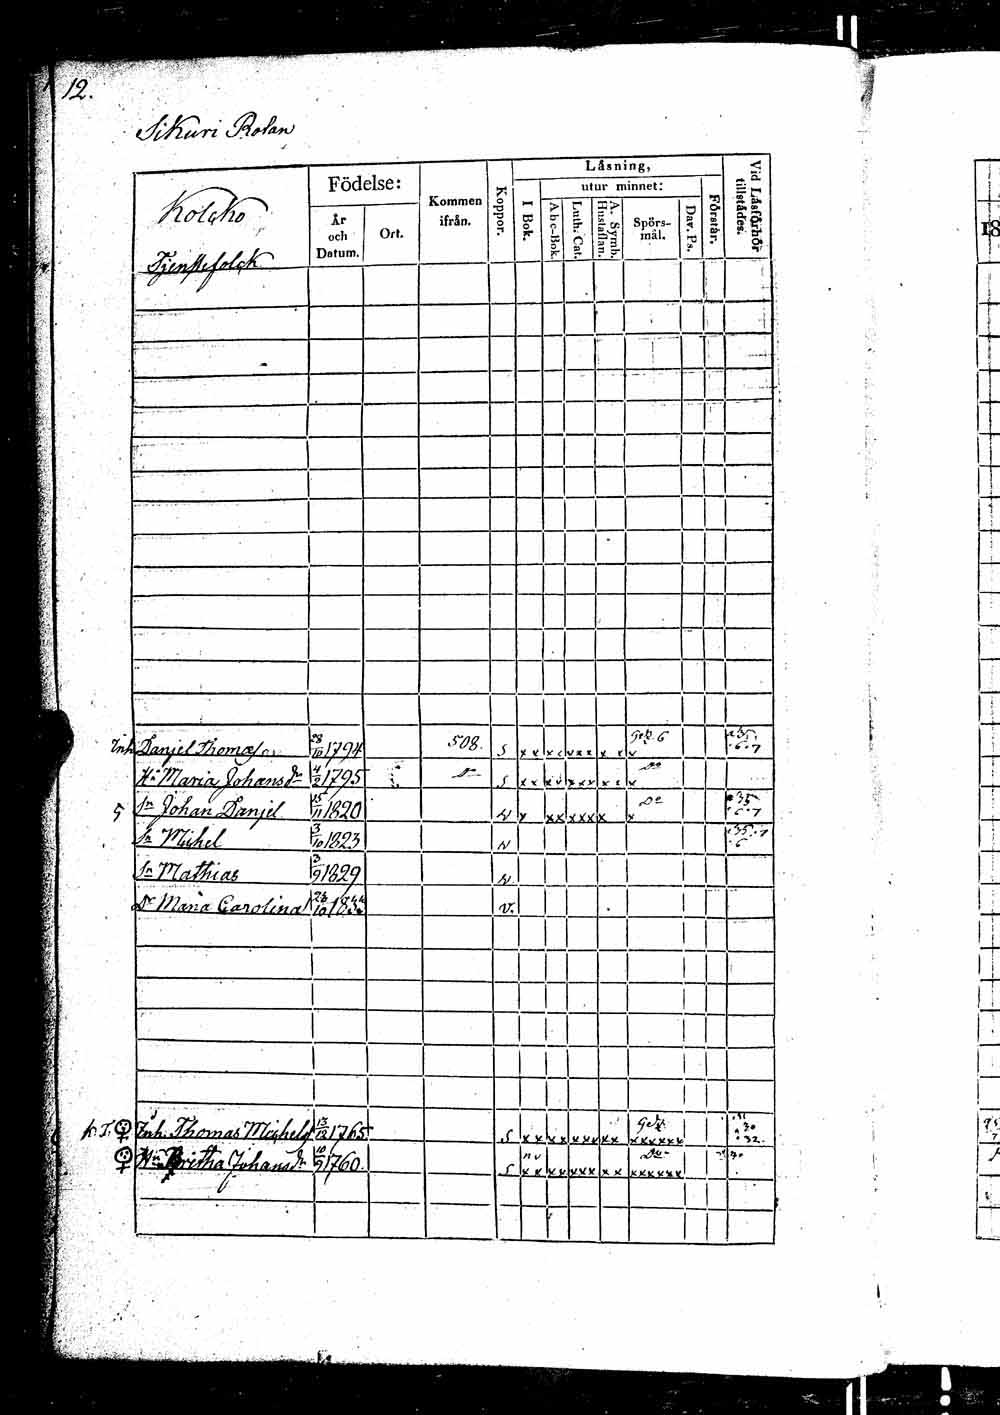 12.
Sikuri Rotan
Kolcko
Tjenstefolck
Födelse:
År och Datum.
Ort.
Kommen ifrån.
Koppor.
Läsning,
I Bok.
utur minnet:
Abc-Bok.
Luth. Cat.
A. Symb. Hustaflan.
Spörs-mål.
Dav. Ps.
Förstår.
Vid Läsförhör tillstädes.
18
Inh. Danjel Thomæs. 28/10 1794 508. S x x x c v x x x x v Gek. 6 .35. .6.7
Hu Maria Johansdr 4/2 1795 Do S x x x v x x x x c x Do
5 Sn Johan Danjel 15/11 1820 v x x x x x x x x Do .35 .6.7
Sn Michel 3/10 1823 v .35.7 .6
Sn Mathias 3/9 1829 v
Dr Maria Carolina 28/10 18 v.
Inh. Thomas Michels 13/12 1765 S x x x x x x x x x x x x x x x Gek. .31 .30 .32.
Hu Britha Johansdr 10/9 1760. S x x x x x x x x x x x x x x x Do 30